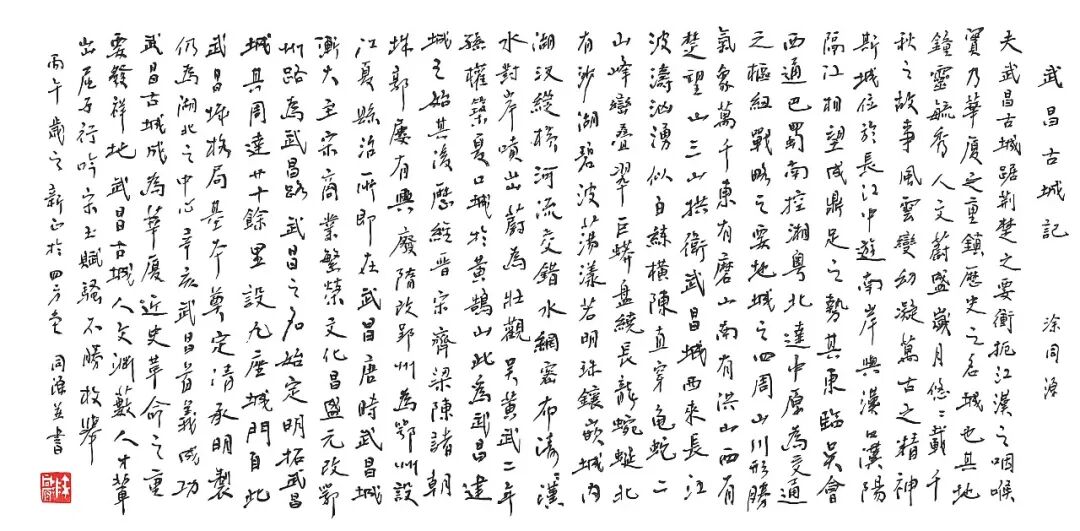 武昌古城記 涂同源
夫武昌古城踞荆楚之要衝扼江漢之咽喉
實乃華廈之重鎮歷史之名城也其地
鐘靈毓秀人文蔚盛歲月悠二載千
秋之故事風雲變幻凝萬古之精神
斯城位於長江中遊南岸與漢口漢陽
隔江相望成鼎足之勢其東臨吳會
西通巴蜀南控湘粵北達中原為交通
之樞紐戰略之要地城之四周山川形勝
氣象萬千東有磨山南有洪山西有
楚望山三山拱衛武昌城西來長江
波濤洶湧似白練橫陳直穿龜蛇二
山峰巒疊翠巨蟒盤繞長龍蜿蜒北
有沙湖碧波蕩漾若明珠鑲嵌城內
湖汊縱橫河流交錯水網密布濤漢
水對岸噴出蔚為壯觀吳黃武二年
孫權築夏口城於黃鵠山此為武昌建
城之始其後歷經晉宋齊梁陳諸朝
城郭屢有興廢隋改郢州為鄂州設
江夏縣治所即在武昌唐時武昌城
漸大至宋商業繁榮文化昌盛元改鄂
州路為武昌路武昌之名始定明拓武昌
城其周達廿十餘里設九座城門自此
武昌城格局基本奠定清承明製
仍為湖北之中心辛亥武昌首義成功
武昌古城成為華廈近史革命之重
要發祥地武昌古城人文淵藪人才輩
出屈子行吟宋玉賦騷不勝枚舉
丙午歲之新正於四方堂 同源並書